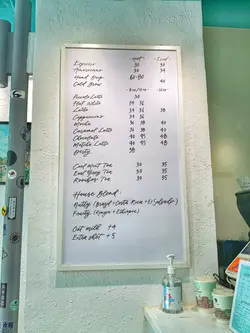 Hot Iced
Espresso 30 30
Americano 30 34
Hand Drip 60-80
Cold Brew 42
Piccolo Latte 30
Flat White 34 36
Latte 34 38
Cappuccino 34 36
Mocha 36 38 40
Caramel Latte 36 38 40
Chocolate 40 45 48
Matcha Latte 40 45 48
Dirty 38
Cool Mint Tea 30 35
Earl Grey Tea 30 35
Rooibos Tea 30 35
House Blend:
Nutty (Brazil + Costa Rica + El Salvador)
Fruity (Kenya + Ethiopia)
Oat milk +4
Extra shot +5